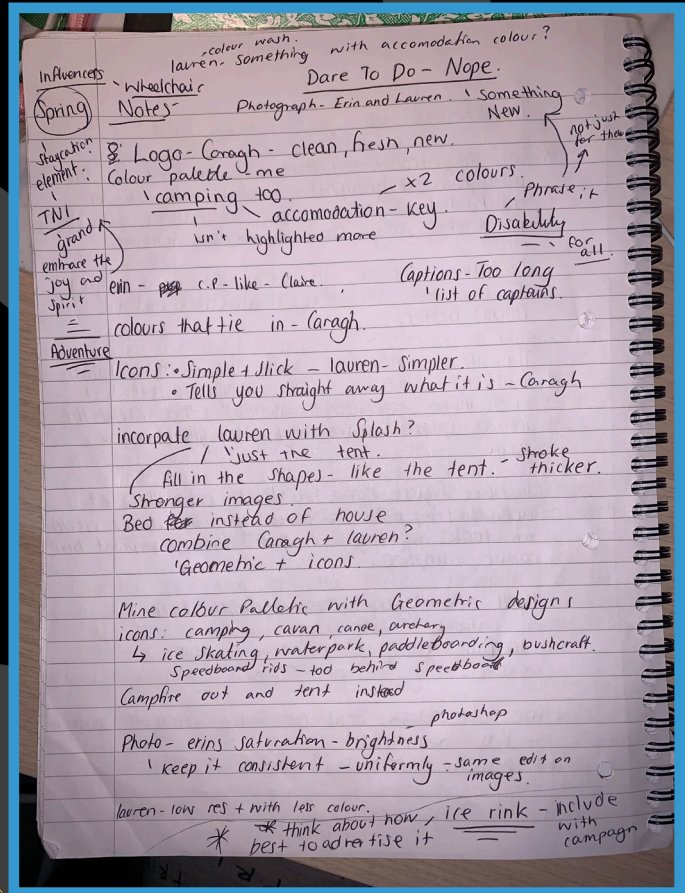 colour wash.
lauren - something with accomodation colour?
Influencers
Dare To Do - Nope.
Wheelchair
Spring
Notes-
Photograph - Erin and Lauren. 'Something New.
not just for them
Staycation element:
Logo - Caragh - clean, fresh, new.
Colour palette - me
x2 colours.
'camping too.
TNI
accomodation - key.
Phrase it
Disability
for all.
isn't highlighted more
grand
embrace the joy and spirit
erin - c.p - like - Claire.
Captions - Too long
'list of captains.
colours that tie in - Caragh.
Adventure
Icons: • Simple + slick - lauren - simpler.
• Tells you straight away what it is - Caragh
incorpate lauren with Splash?
'just the tent.
fill in the shapes - like the tent. - stroke thicker.
Stronger images.
Bed instead of house
combine Caragh + lauren?
'Geometric + icons.
Mine colour Palletic with Geometric designs
icons: camping, cavan, canoe, archery
↳ ice skating, waterpark, paddleboarding, bushcraft.
Speedboard rids - too behind speedboat
Campfire out and tent instead
photoshop
Photo - erins saturation - brightness
'keep it consistent - uniformly - same edit on images.
lauren - low res + with less colour.
* think about how, ice rink - include with campagn
best to advertise it